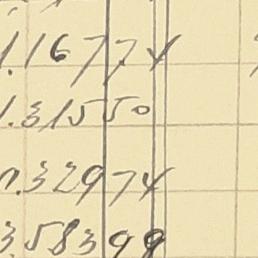 1.16774
1.31550
0.32974
3.58399